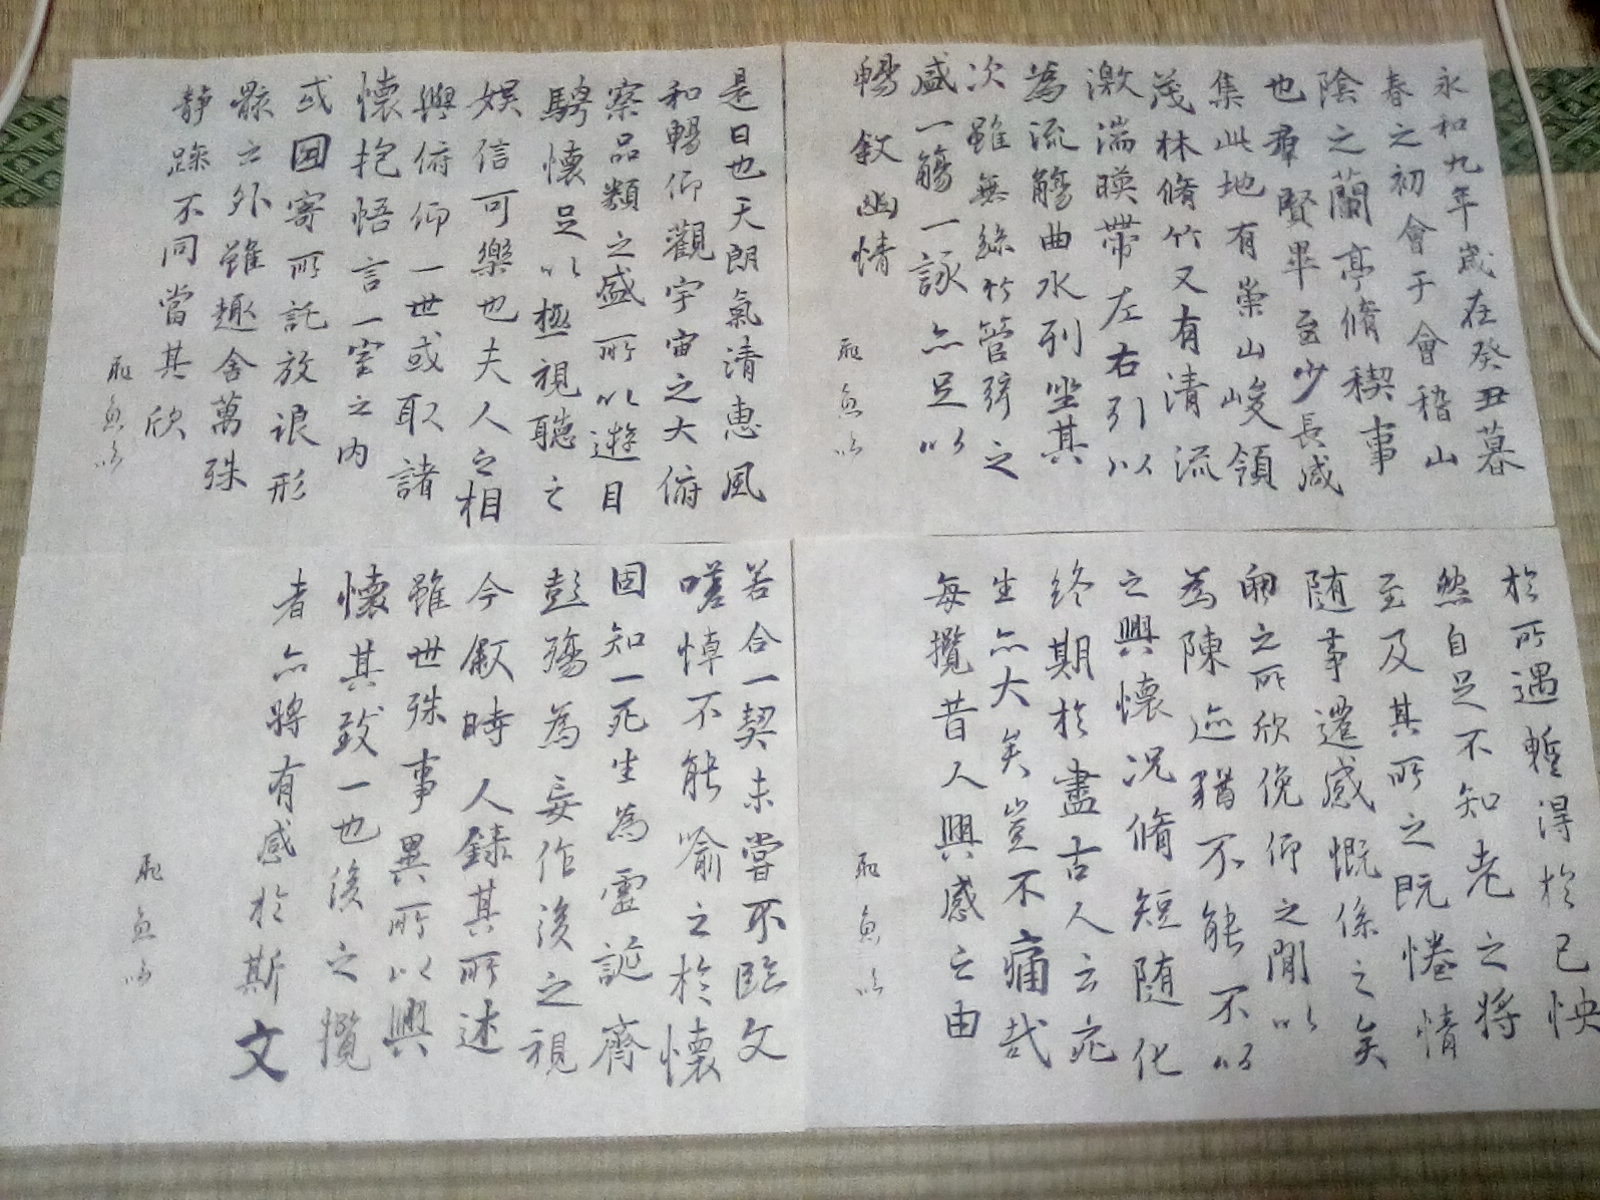 永和九年歳在癸丑暮
春之初會于會稽山
陰之蘭亭脩稧事
也羣賢畢至少長咸
集此地有崇山峻領
茂林脩竹又有清流
激湍暎帶左右引以
為流觴曲水列坐其
次雖無絲竹管弦之
盛一觴一詠亦足以
暢敘幽情
是日也天朗氣清惠風
和暢仰觀宇宙之大俯
察品類之盛所以遊目
騁懷足以極視聽之
娯信可樂也夫人之相
與俯仰一世或取諸
懷抱悟言一室之内
或因寄所託放浪形
骸之外雖趣舎萬殊
靜躁不同當其欣
於所遇蹔得於己怏
然自足不知老之将
至及其所之既惓情
随事遷感慨係之矣
向之所欣俛仰之閒以
為陳迹猶不能不以
之興懷况脩短随化
終期於盡古人云死
生亦大矣豈不痛哉
每攬昔人興感之由
若合一契未嘗不臨文
嗟悼不能喻之於懐
固知一死生為虚誕齊
彭殤為妄作後之視
今敘時人録其所述
雖世殊事異所以興
懐其致一也後之攬
者亦将有感於斯文